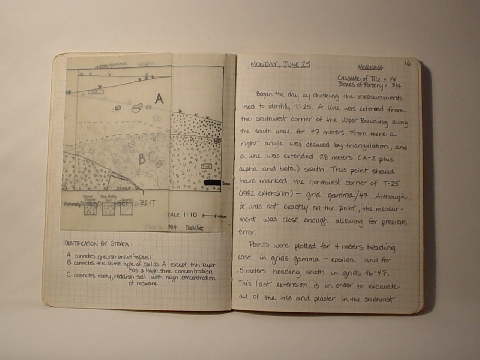 A
B
SCALE 1:10
IDENTIFICATION BY STRATA:
A connotes greyish brown topsoil
B connotes the same type of soil as A, except thin layer
has a high stone concentration
C connotes rocky, reddish soil with high concentration
of
MONDAY, JUNE 25
16
MORNING
Crates of Tile = 14
Boxes of Pottery = 344
Began the day by checking the measurements
used to identify T-25. A line was extended from
the southwest corner of the Upper Building along
the south wall for 47 meters. From there a
right angle was created by triangulation, and
a line was extended 28 meters (A-Z plus
alpha and beta) south. This point should
have marked the northwest corner of T-25
extension) - grid gamma/47. Although
it was not exactly on the point, the measure-
ment was close enough allowing for previous
error.
Points were plotted for 4 meters heading
east in grids gamma - epsilon and for
3 meters heading south in grids 46-47.
This last extension is in order to excavate
all of the tile and plaster in the southwest